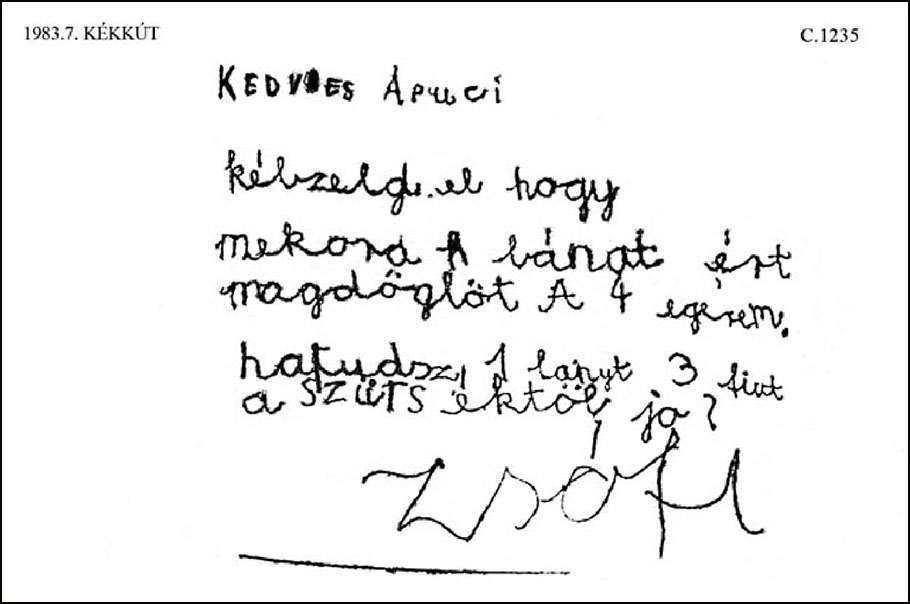 1983.7. KÉKKÚT
C.1235
KEDVES APUCI
kébzeld el hogy
mekora bánat ért
magdőglöt A 4 egérem.
hatudsz, 1 lányt 3 fiut
a SZÜTS éktől, jó?
ZSÓFI